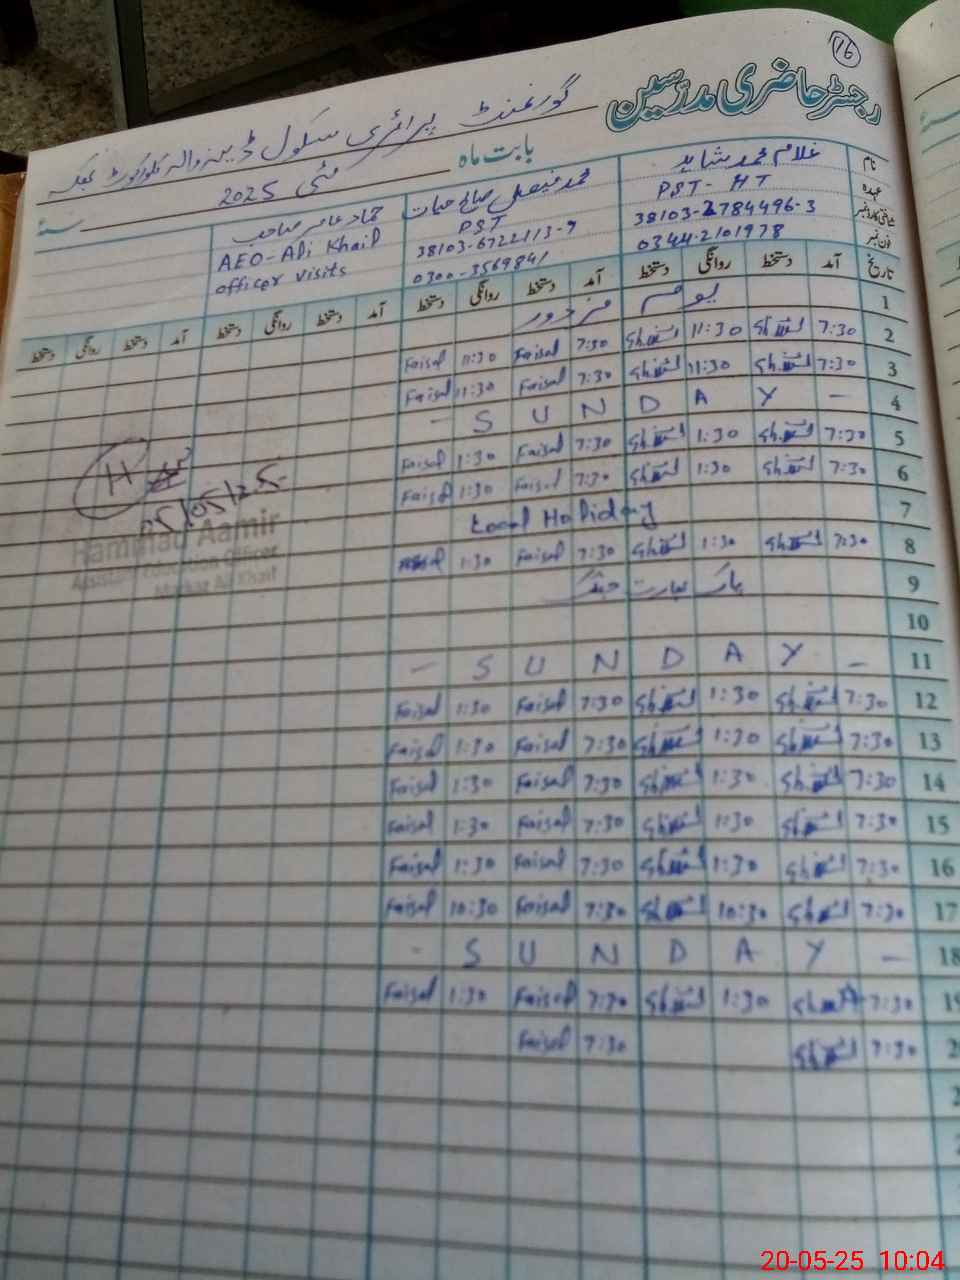 16
رجسٹر حاضری مدرسین
گورنمنٹ پرائمری سکول
بابت ماہ مئی 2025 سنۂ
نام غلام محمد شاہد محمد فیصل حیات حماد عامر صاحب
عہدہ PST - HT PST AEO - Ali Khail
شناختی کارڈ نمبر 38103-2784496-3 38103-6722113-9 officer visits
فون نمبر 0344-2101978 0300-3569841
تاریخ آمد دستخط روانگی دستخط آمد دستخط روانگی دستخط آمد دستخط روانگی دستخط آمد دستخط روانگی دستخط
1 یوم مزدور
2 7:30 11:30 7:30 Faisal 11:30 Faisal
3 7:30 11:30 7:30 Faisal 11:30 Faisal
4 - S U N D A Y -
5 7:30 1:30 7:30 Faisal 1:30 Faisal
6 7:30 1:30 7:30 Faisal 1:30 Faisal
7 Local Holiday
8 7:30 1:30 7:30 Faisal 1:30 Faisal
9 پاک بھارت جنگ
10
11 - S U N D A Y -
12 7:30 1:30 7:30 Faisal 1:30 Faisal
13 7:30 1:30 7:30 Faisal 1:30 Faisal
14 7:30 1:30 7:30 Faisal 1:30 Faisal
15 7:30 1:30 7:30 Faisal 1:30 Faisal
16 7:30 1:30 7:30 Faisal 1:30 Faisal
17 7:30 10:30 7:30 Faisal 10:30 Faisal
18 - S U N D A Y -
19 7:30 1:30 7:30 Faisal 1:30 Faisal
7:30 7:30 Faisal
H
05/05/25
Hammad Aamir
Assistant Education Officer
Markaz Ali Khail
20-05-25 10:04